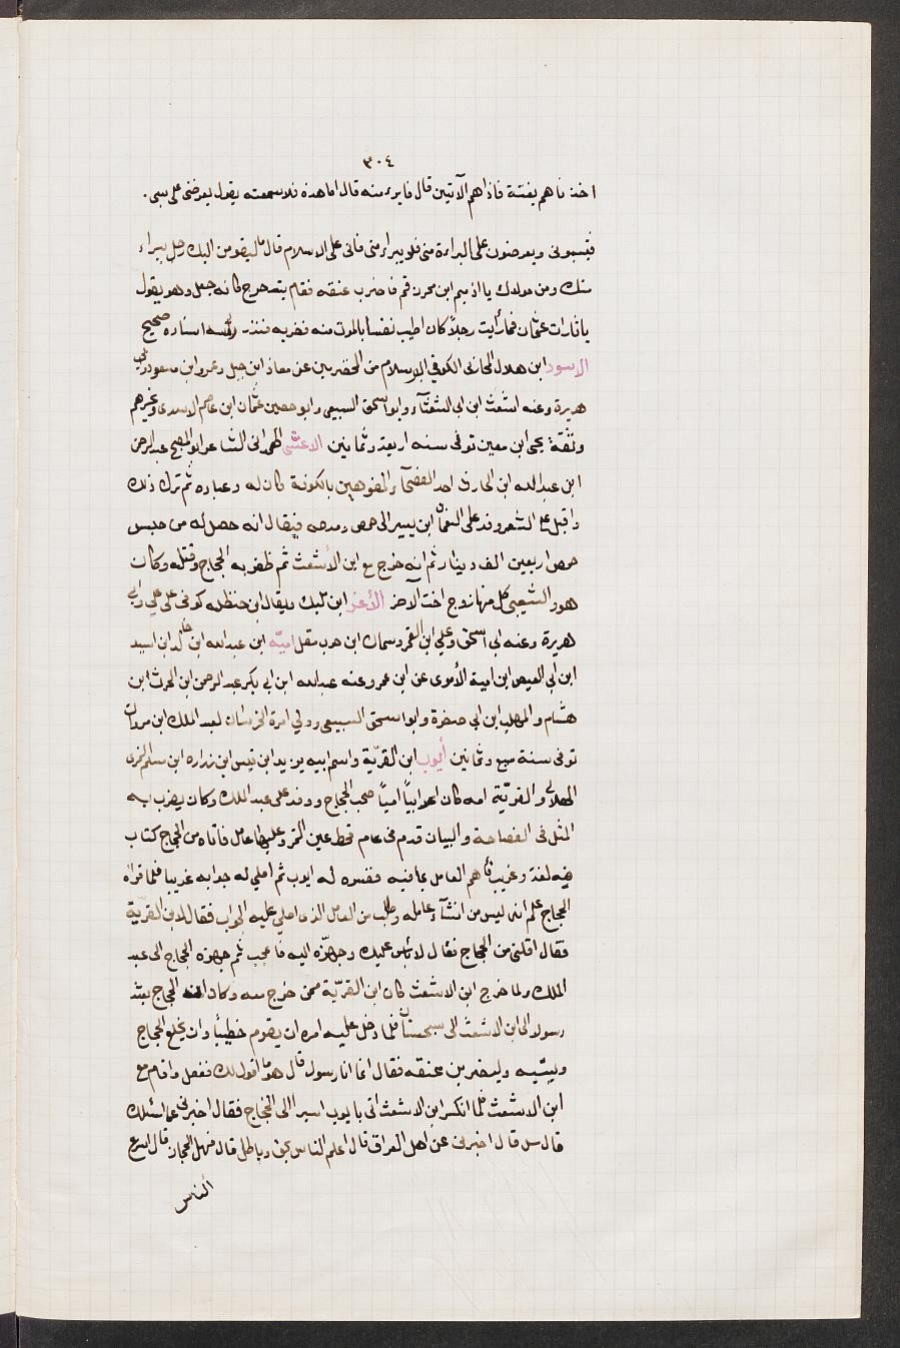 ٣٠٤
اخذناهم بغتة فاذاهم الآتين قال فابرء منه قال اما هذه فلا سمعته يقول يعرضني على سبي.
فتسبوني ويعرضون على البراءة مني فلا يبراء مني فاني على الاسلام قال ليقومن اليك رجل يبراء
منك ومن مولدك يا ادهم ابن محرز قم فاضرب عنقه فقام يتدحرج كانه جعل وهو يقول
يا ثارات عثمان فما رأيت رجلاً كان اطيب نفساً بالموت منه فضربه فندر راسه اسناده صحيح
الاسود ابن هلال المحاربي الكوفي من المخضرمين عن معاذ ابن جبل وعمر وابن مسعود وابي
هريرة وعنه اشعث ابن ابي الشعثآء وابو اسحق السبيعي وابو حصين عثمان ابن عاصم الاسدي وغيرهم
وثقة يحيى ابن معين توفى سنه اربعة وثمانين الاعشى الهمداني الشاعر ابو المصبح عبد الرحمن
ابن عبد الله ابن الحارث احد الفصحآ والمفوهين بالكوفة كان له وعباده ثم ترك ذلك
واقبل على الشعر وفد على النعمان ابن بشير الى حمص ومدحه فيقال انه حصل له من جيش
حمص اربعين الف دينار ثم انه خرج مع ابن الأشعث ثم ظفر به الحجاج وقتله وكان
هو والشعبي كل منها زوج اخت الآخر الأغر ابن سليك ويقال ابن حنظله كوفى عن علي وابي
هريرة وعنه ابي اسحق وعلي ابن الاقمر وسماك ابن حرب مقل امية ابن عبد الله ابن خالد ابن اسيد
ابن ابي العيص ابن امية الأموى عن ابن عمر وعنه عبد الله ابن ابي بكر عبد الرحمن ابن الحرث ابن
هشام والمهلب ابن ابي صفرة وابو اسحق السبيعي وولي امرة الخرسان لعبد الملك ابن مروان
توفى سنة سبع وثمانين أيوب ابن القرّية واسم ابيه يزيد ابن قيس ابن زراره ابن سلم النمري
الهلالي والقرّية امه كان اعرابيّاً اميّاً صحب الحجاج ووفد على عبد الملك وكان يضرب به
المثل فى الفصاحة والبيان قدم فى عام قحط عين التمر وعليها عامل فاتاه من الحجاج كتاب
فيه لغة وغريب فاهم العامل بما فيه ففسره له ايوب ثم املى له جوابه غريبا فلما قراه
الحجاج علم انه ليس من انشآء عامله وطلب من العامل الذي املى عليه الجواب فقال لابن القرّية
فقال اقلني من الحجاج فقال لا بأس عليك وجهّزه اليه فاعجب ثم جهزه الحجاج الى عبد
الملك ولما خرج ابن الاشعث كان ابن القرّية ممن خرج معه وكان الحجاج بعثه
رسولا الى ابن الاشعث الى سجستان فلما دخل عليه امره ان يقوم خطيبًا وان يخلع الحجاج
ويسبّه وليضربن عنقه فقال انما انا رسول قال هو ما اقول لك ففعل واقام مع
ابن الاشعث فلما انكسر ابن الاشعث اتى بايوب اسيرا الى الحجاج فقال اخبرنى عما اسئلك
قال سل قال اخبرني عن اهل العراق قال اعلم الناس بحق وباطل قال فاهل الحجاز قال اسرع
الناس